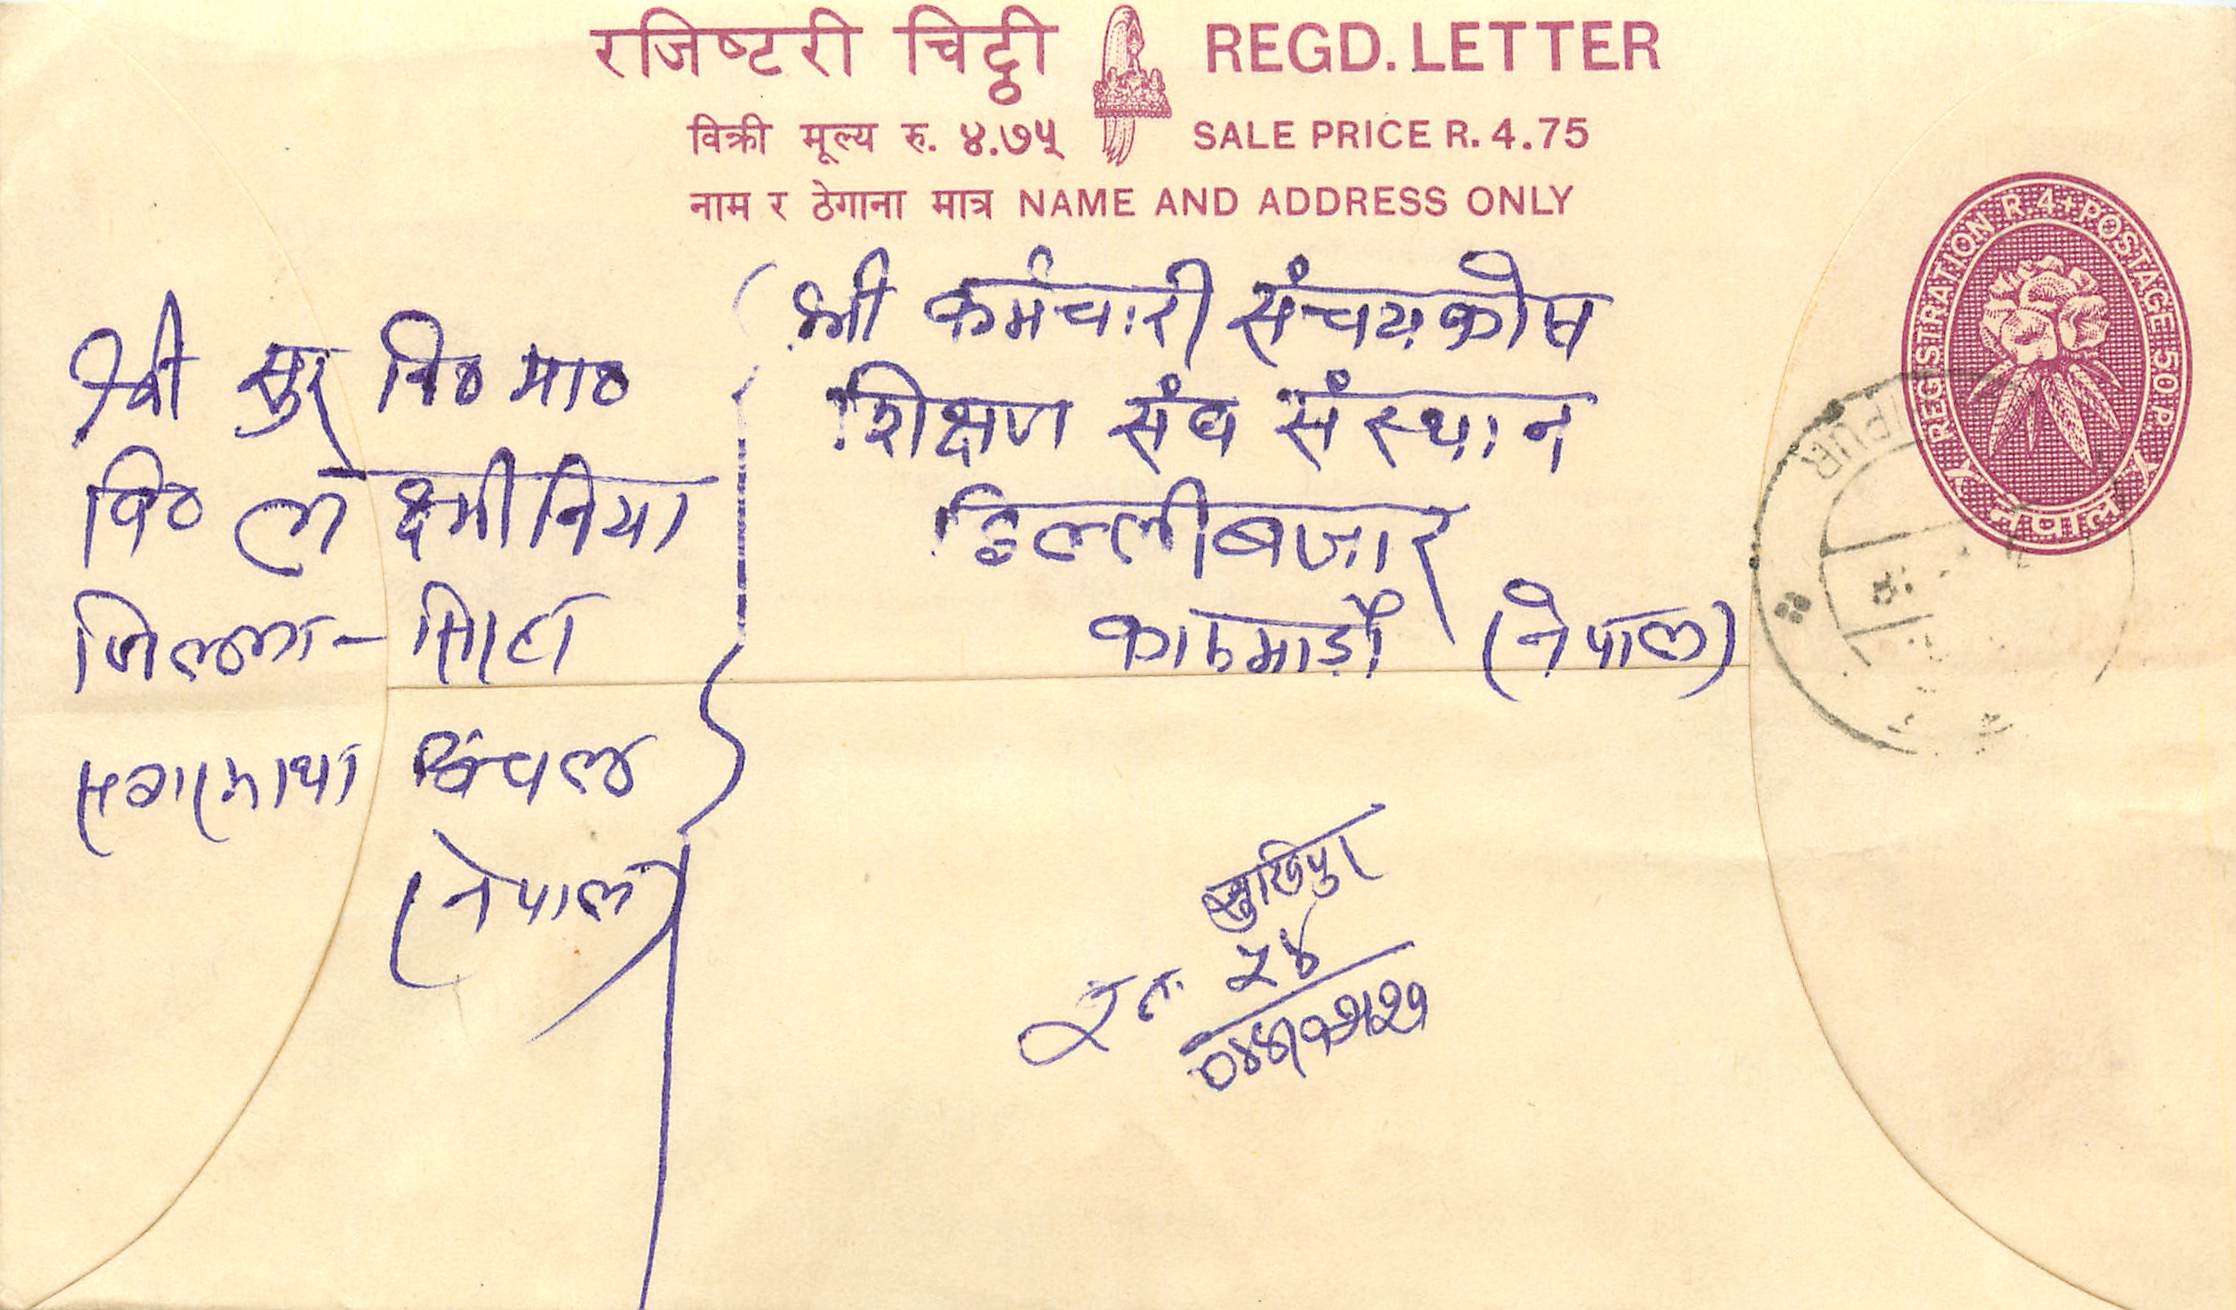 रजिष्टरी चिट्ठी REGD. LETTER
विक्री मूल्य रु. ४.७५ SALE PRICE R. 4.75
नाम र ठेगाना मात्र NAME AND ADDRESS ONLY
REGISTRATION R. 4+POSTAGE 50 P.
नेपाल
श्री कर्मचारी संचयकोष
शिक्षण संघ संस्थान
डिल्लीबजार
काठमाडौं (नेपाल)
श्री सुर नि० मा०
वि० लक्ष्मीनिया
जिल्ला - सिरहा
सगरमाथा अंचल
(नेपाल)
सुखिपुर
२४
PUR